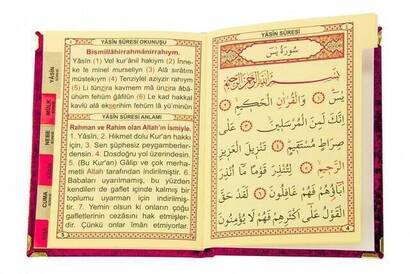 YÂSÎN SÛRESİ OKUNUŞU
Bismillâhirrahmânirrahıym.
Yâsîn (1) Vel kur'ânil hakiym (2) İnne-
ke le minel murseliyn (3) Alâ sırâtım
müstekıym (4) Tenziylel aziyzir rahıym
(5) Li tünzira kavmem mâ ünzira âbâ-
ühüm fehüm ğâfilûn (6) Le kad hakkal
kavlü alâ ekserihim fehüm lâ yü'minûn
YÂSÎN SÛRESİ ANLAMI
Rahman ve Rahim olan Allah'ın İsmiyle.
1. Yâsîn, 2. Hikmet dolu Kur'an hakkı
için, 3. Sen şüphesiz peygamberler-
densin. 4. Dosdoğru yol üzerindesin.
5. (Bu Kur'an) Gâlip ve çok merha-
metli Allah tarafından indirilmiştir. 6.
Babaları uyarılmamış, bu yüzden
kendileri de gaflet içinde kalmış bir
toplumu uyarman için indirilmiştir.
7. Yemin olsun ki onların çoğu
gafletlerinin cezâsını hak etmişler-
dir. Çünkü onlar îman etmiyorlar.
YÂSİN
MÜLK
NEBE
CUMA
YÂSÎN SÛRESİ
سُورَةُ يٰسٓ
بِسْمِ اللّٰهِ الرَّحْمٰنِ الرَّحِيمِ
يٰسٓ ﴿١﴾ وَالْقُرْاٰنِ الْحَكِيمِ ﴿٢﴾
اِنَّكَ لَمِنَ الْمُرْسَلِينَ ﴿٣﴾ عَلٰى
صِرَاطٍ مُسْتَقِيمٍ ﴿٤﴾ تَنْزِيلَ الْعَزِيزِ
الرَّحِيمِ ﴿٥﴾ لِتُنْذِرَ قَوْمًا مَٓا اُنْذِرَ
اٰبَٓاؤُهُمْ فَهُمْ غَافِلُونَ ﴿٦﴾ لَقَدْ حَقَّ
الْقَوْلُ عَلٰٓى اَكْثَرِهِمْ فَهُمْ لَا يُؤْمِنُونَ